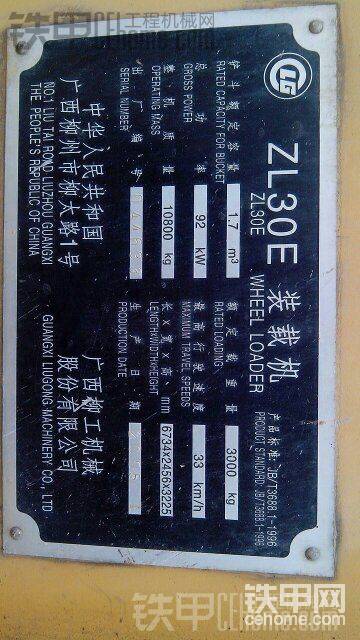 CLG
ZL30E 装载机
ZL30E WHEEL LOADER
产品标准:JB/T3688.1-1996
PRODUCT STANDARD:JB/T3688.1-1996
铲斗额定容量 1.7 m³
RATED CAPACITY FOR BUCKET
额定载重量 3000 kg
RATED LOADING
总功率 92 kW
GROSS POWER
最高行驶速度 33 km/h
MAXIMUM TRAVEL SPEEDS
整机质量 10800 kg
OPERATING MASS
长×宽×高、mm 6734x2456x3225
LENGTHxWIDTHxHEIGHT
出厂编号
SERIAL NUMBER
生产日期
PRODUCTION DATE
中华人民共和国
广西柳州市柳太路1号
NO.1 LIU TAI ROAD LIUZHOU GUANGXI
THE PEOPLE'S REPUBLIC OF CHINA
广西柳工机械
股份有限公司
GUANGXI LIUGONG MACHINERY CO., LTD
铁甲工程机械网
铁甲网